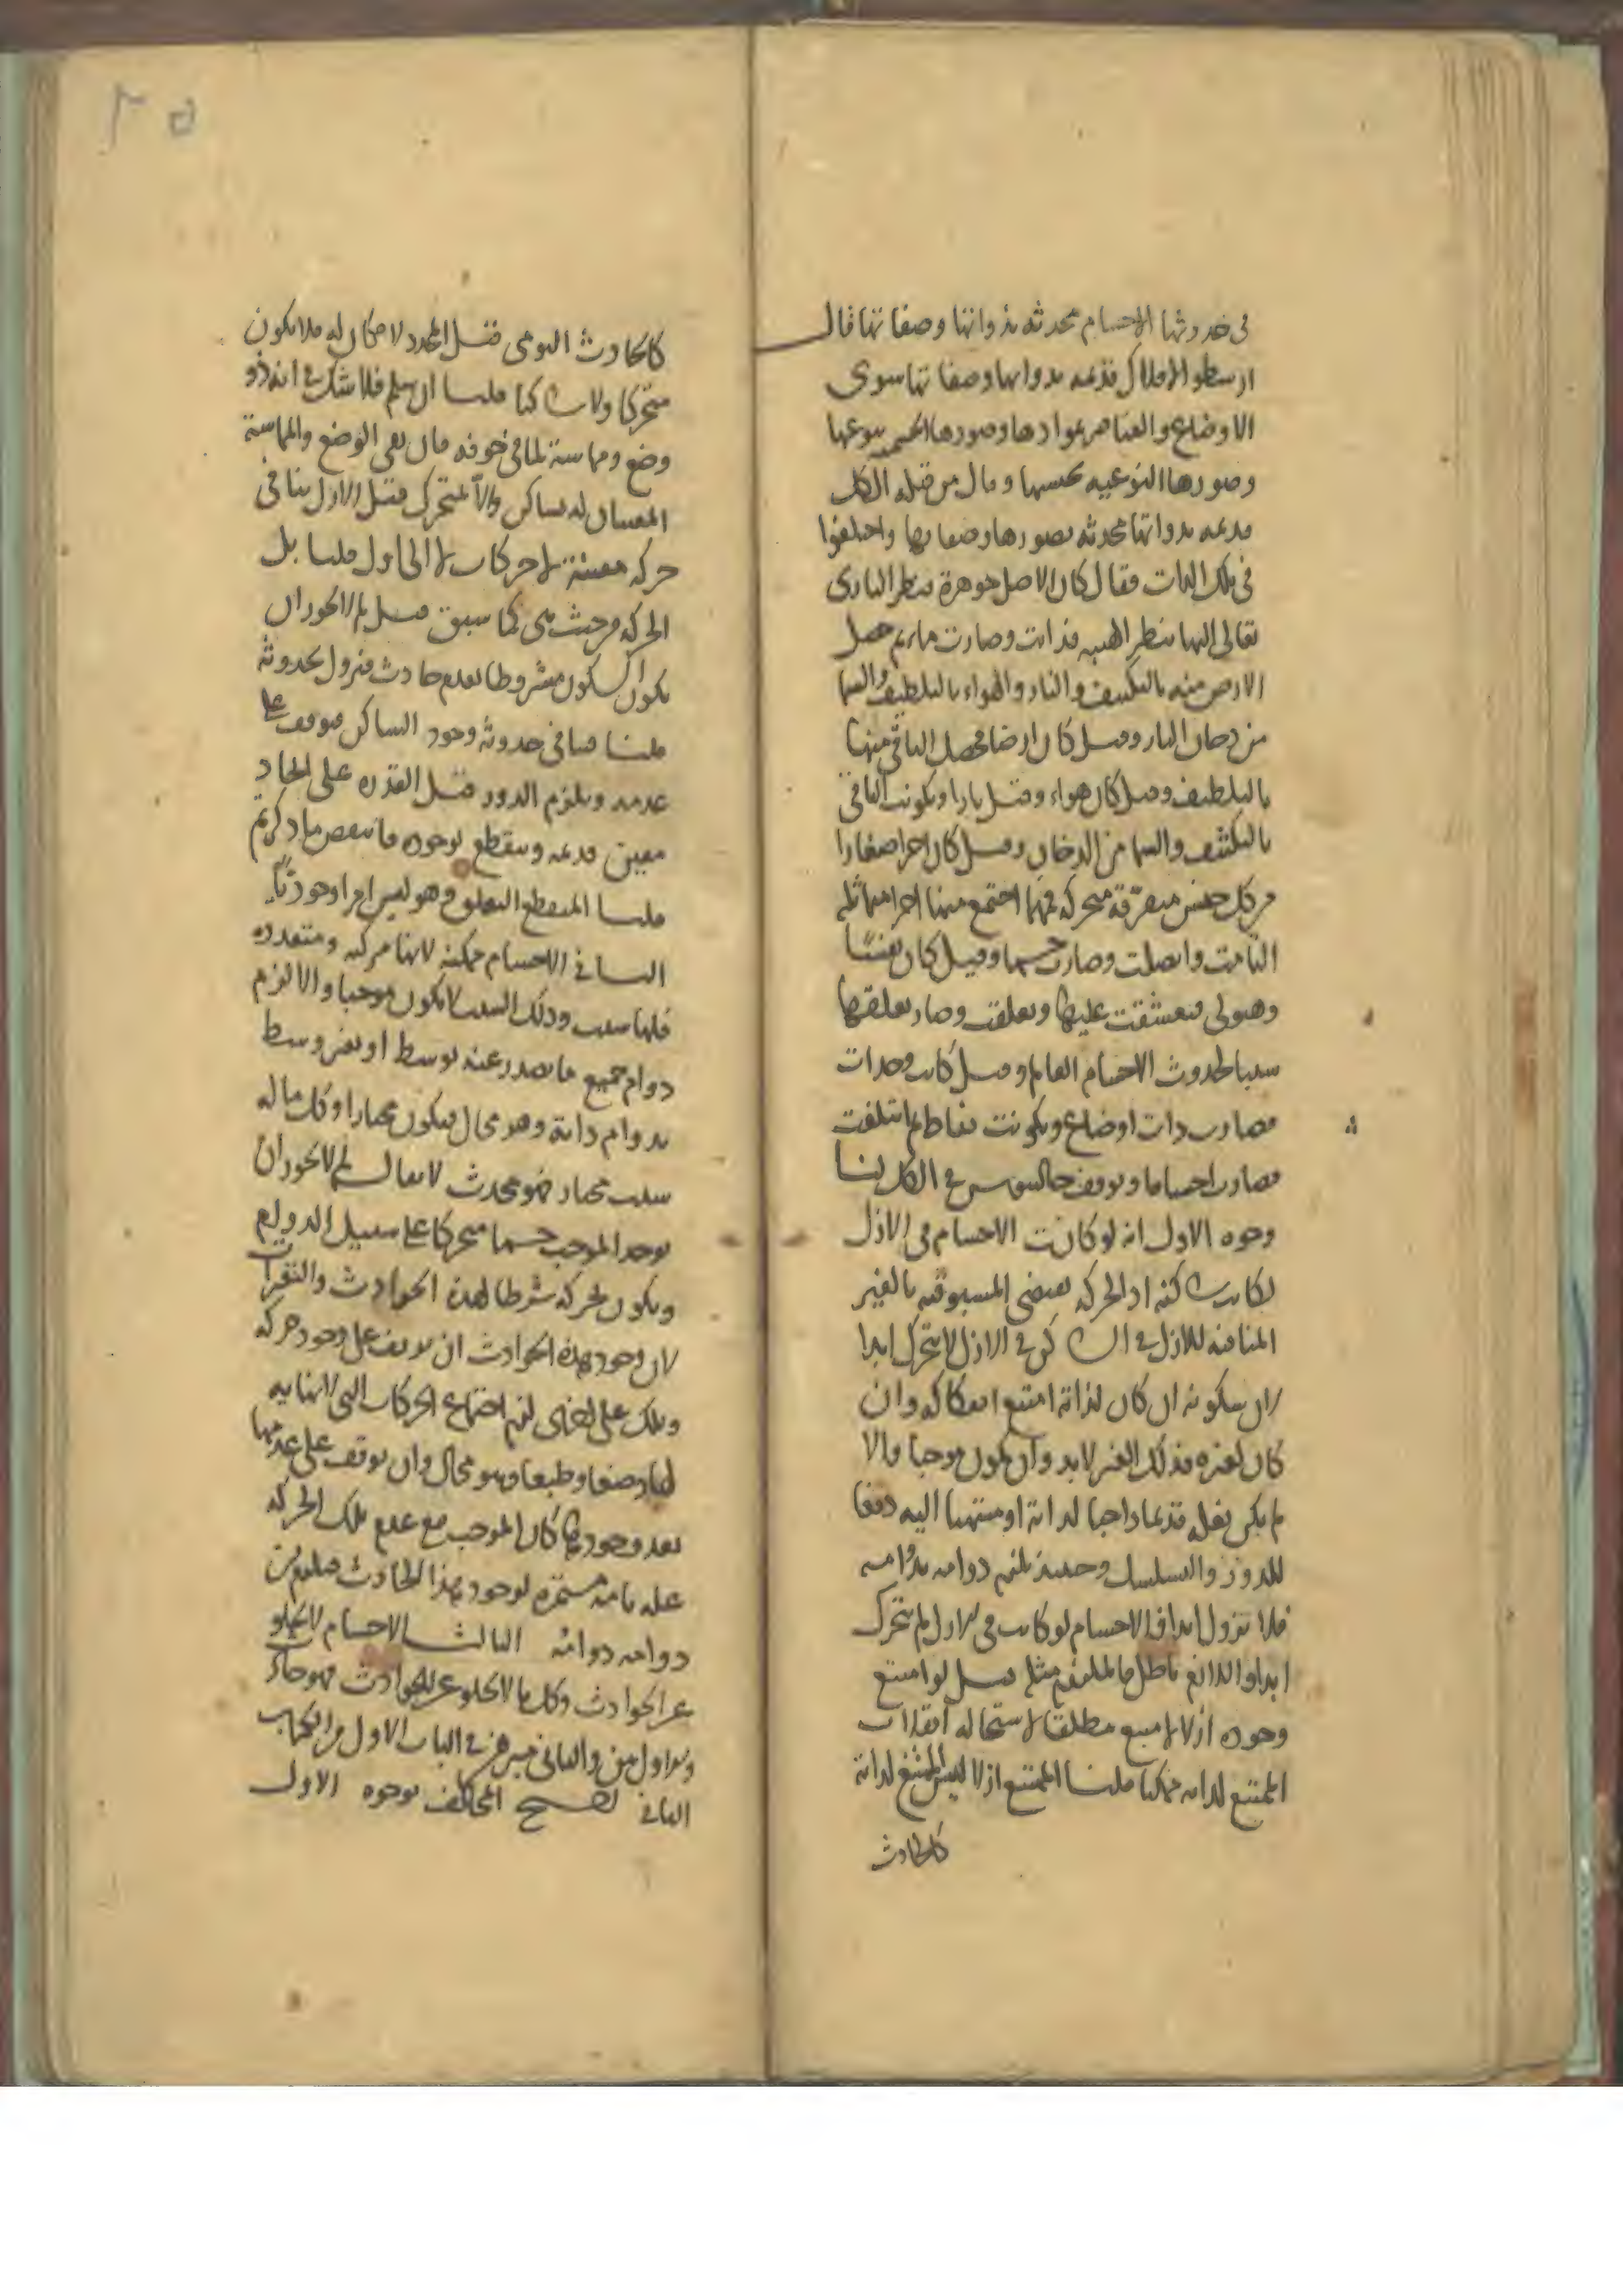 في حدوثها الاجسام محدثة بذواتها وصفاتها قال
ارسطو الافلاك قديمة بذواتها وصفاتها سوى
الاوضاع والعناصر بموادها وصورها الجسمية بنوعها
وصورها النوعية بجنسها وقال من قبله الكل
قديمة بذواتها محدثة بصورها وصفاتها واختلفوا
في تلك الذات فقال كان الاصل جوهرة فنظر الباري
تعالى اليها بنظر الهيبة فذابت وصارت ماء ثم حصل
الارض منه بالتكثيف والنار والهواء بالتلطيف والسما
من دخان النار وقيل كان ارضا فحصل الباقي منها
بالتلطيف وقيل كان هواء وقيل نارا وتكونت الباقي
بالتكثيف والسما من الدخان وقيل كان اجزا صغارا
من كل جنس متفرقة متحركة فمهما اجتمع منها اجزا متماثلة
التامت واتصلت وصارت جسما وقيل كان نفسا
وهيولى فتعشقت عليها وتعلقت وصار تعلقها
سببا لحدوث الاجسام العالم وقيل كانت وحدات
فصارت ذات اوضاع وتكونت نقاطا ثم ائتلفت
فصارت اجساما وتوقف جالينوس في الكل لنا
وجوه الاول انه لو كانت الاجسام في الازل
لكانت ساكنة اذ الحركة تقتضي المسبوقية بالغير
المنافية للازل والساكن في الازل لا يتحرك ابدا
لان سكونه ان كان لذاته امتنع انفكاكه وان
كان لغيره فذلك الغير لا بد وان يكون موجبا والا
لم يكن فعله قديما واجبا لذاته او منتهيا اليه دفعا
للدور والتسلسل وحينئذ يلزم دوامه بدوامه
فلا تزول ابدا فالاجسام لو كانت في الازل لم يتحرك
ابدا واللازم باطل فالملزوم مثله قيل لو امتنع
وجوده ازلا لامتنع مطلقا لاستحالة انقلاب
الممتنع لذاته ممكنا قلنا الممتنع ازلا ليس الممتنع لذاته
كالحادث
كالحادث اليومي قيل المحدد لا مكان له فلا يكون
متحركا ولا ساكنا قلنا ان سلم فلا شك في انه ذو
وضع ومماسة لما في جوفه فان بقي الوضع والمماسة
المعينان له فساكن والا فمتحرك قيل الازل ينافي
حركة معينة لا حركات لا الى اول قلنا بل
الحركة من حيث هي كما سبق قيل لم لا يجوز ان
يكون السكون مشروطا بعدم حادث فيزول بحدوثه
قلنا فينافي حدوثه وجود الساكن فتوقف على
عدمه ويلزم الدور قيل القدرة على ايجاد
معين قديمة وينقطع بوجوده فانتقض ما ذكرتم
قلنا المنقطع التعلق وهو ليس امرا وجوديا
الثاني الاجسام ممكنة لانها مركبة ومتعددة
فلها سبب وذلك السبب لا يكون موجبا والا لزم
دوام جميع ما يصدر عنه بوسط او بغير وسط
بدوام ذاته وهو محال فيكون مختارا وكل ما له
سبب مختار فهو محدث لا يقال لم لا يجوز ان
يوجد الموجب جسما متحركا على سبيل الدوام
ويكون تحركه شرطا لهذه الحوادث والتغيرات
لان وجود هذه الحوادث ان توقف على وجود حركة
وتلك على اخرى لزم اجتماع الحركات التي لا نهاية
لها وضعا وطبعا وهو محال وان توقف على عدمها
بعد وجودها كان الموجب مع عدم تلك الحركة
علة تامة مستمرة لوجود هذا الحادث فيلزم من
دوامه دوامه الثالث الاجسام لا تخلو
عن الحوادث وكل ما لا يخلو عن الحوادث فهو حادث
والاول بين والثاني مبرهن في الباب الاول من الكتاب
الثاني احتج المخالف بوجوه الاول